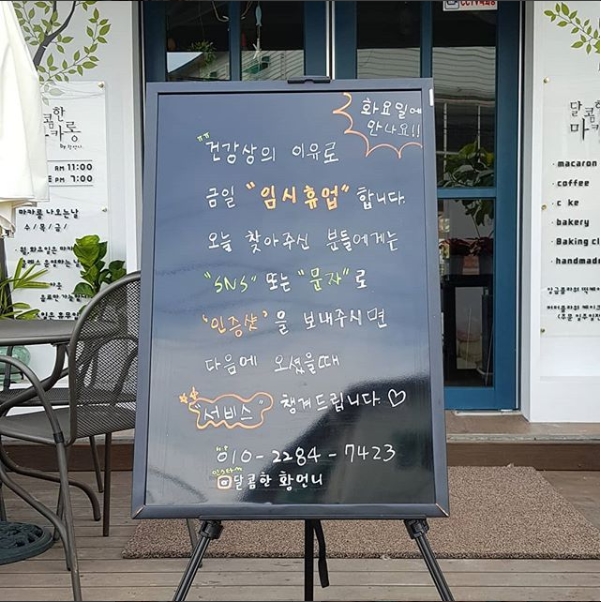 화요일에
만나요!!
건강상의 이유로
금일 "임시휴업" 합니다.
오늘 찾아주신 분들에게는
"SNS" 또는 "문자"로
'인증샷'을 보내주시면
다음에 오셨을때
서비스 챙겨드립니다 ♡
010-2284-7423
달콤한 황언니
달콤한
마카롱
AM 11:00
PM 7:00
마카롱 나오는날
수/목/금/
달콤
마카
· macaron
· coffee
· bakery
· Baking cl
· handmade